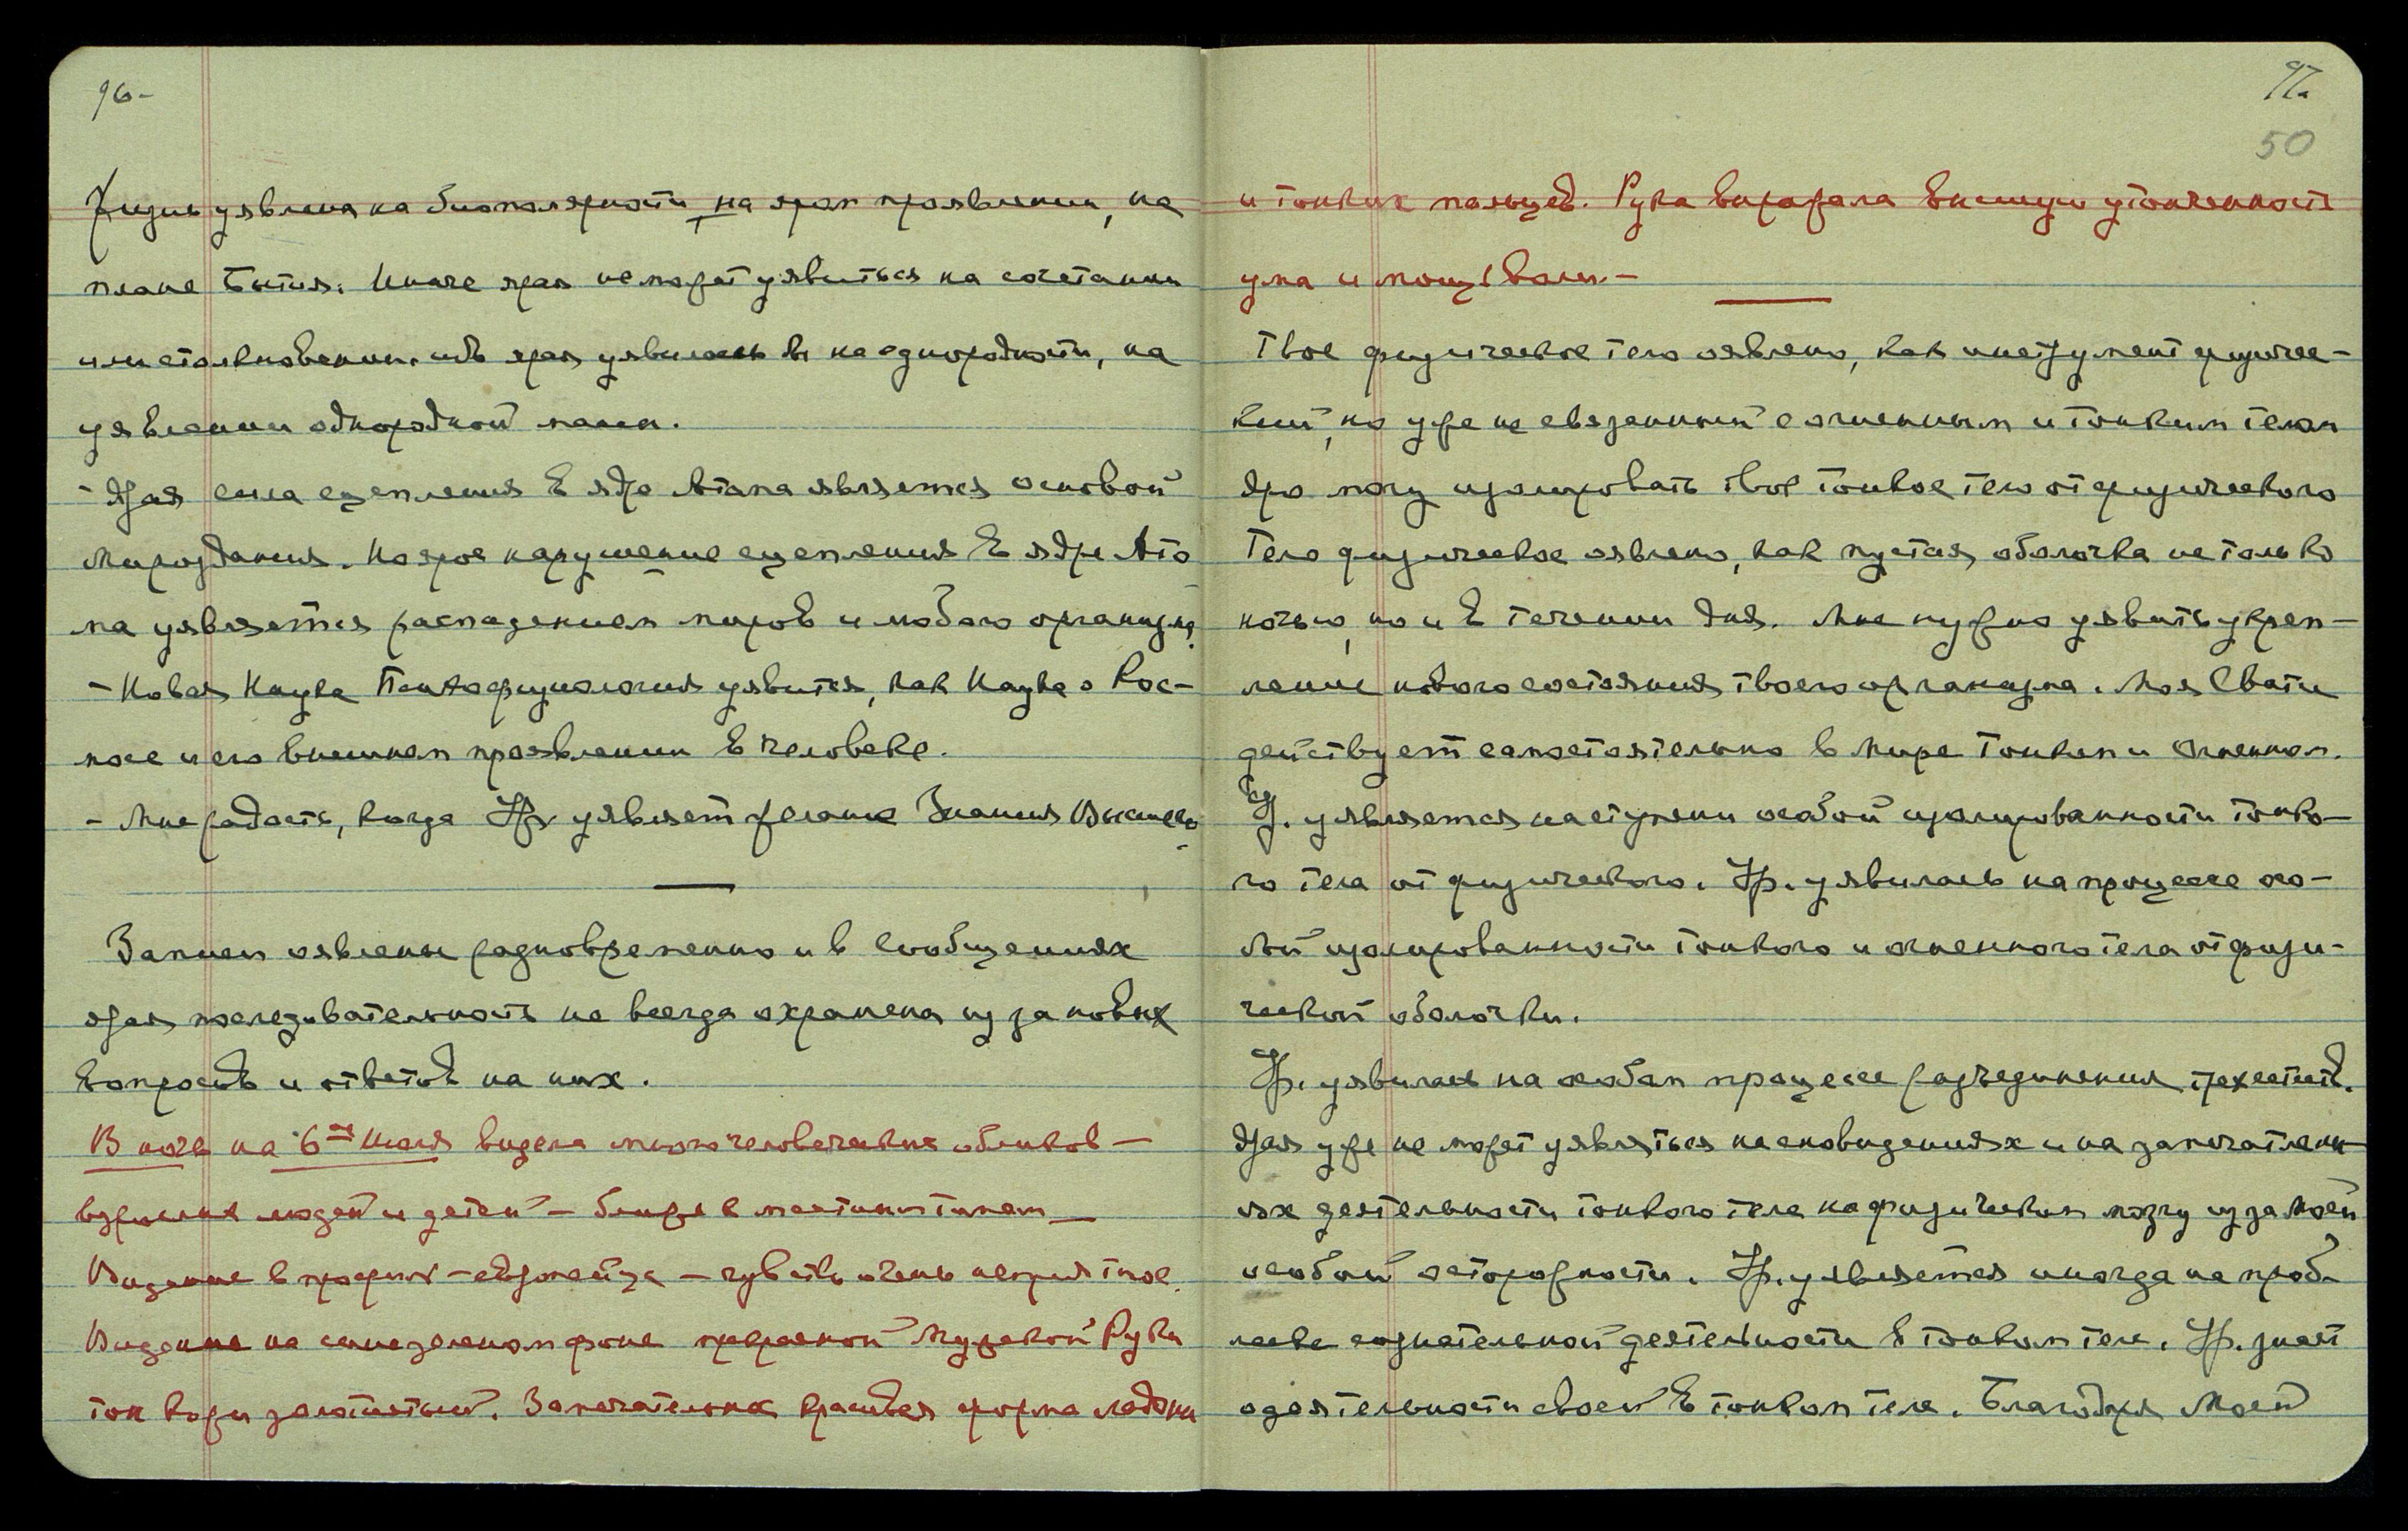 96-
Жизнь уявлена на биополярности, на яром проявлении, на
плане Бытия. Иначе ярая не может уявиться на сочетании
или столкновении. ибо ярая уявилась бы на однородности, на
уявлении однородной
- Ярая сила сцепления в ядре Атома является основой
Мироздания. Но ярое нарушение сцепления в ядре Ато
ма уявляется распадением миров и любого организма.
- Новая Наука Психофизиология уявится, как Наука о Кос-
мосе и его внешнем проявлении в человеке.
- Мне радость, когда Ур. уявляет желание Знания Высшего
Записи оявлены разновременно и в сообщениях
ярая последовательность не всегда охранена из за новых
вопросов и ответов на них.
В ночь на 6ое Июля видела много человеческих обликов —
взрослых людей и детей —
Видение в профиль — — чувство очень неприятное.
Видение на синезеленом фоне прекрасной Мужской Руки
тон кожи золотистый. Замечательно красивая форма ладони
97.
50
и тонких пальцев. Рука выражала высшую утонченность
ума и мощь воли. —
Твое физическое тело оявлено, как инструмент физичес-
кий, но уже не связанный с огненным и тонким телом
Яро могу изолировать твое тонкое тело от физического
Тело физическое оявлено, как пустая оболочка не только
ночью, но и в течении дня. Мне нужно уявить укреп-
ление нового состояния твоего организма. Моя Свати
действует самостоятельно в Мире Тонком и Огненном.
Ур. уявляется на ступени особой изолированности тонко-
го тела от физического. Ур. уявилась на процессе осо-
бой изолированности тонкого и огненного тела от физи-
ческой оболочки.
Ур. уявилась на особом процессе разъединения трех естеств.
Ярая уже не может уявляться на сновидениях и на запечатлени-
ях деятельности тонкого тела на физическом мозгу из за Моей
особой осторожности. Ур. уявляется иногда на проб-
леске сознательной деятельности в тонком теле. Ур. знает
о деятельности своей в тонком теле. Благодаря Моей